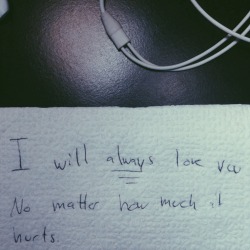 I will always love you
No matter how much it
hurts.